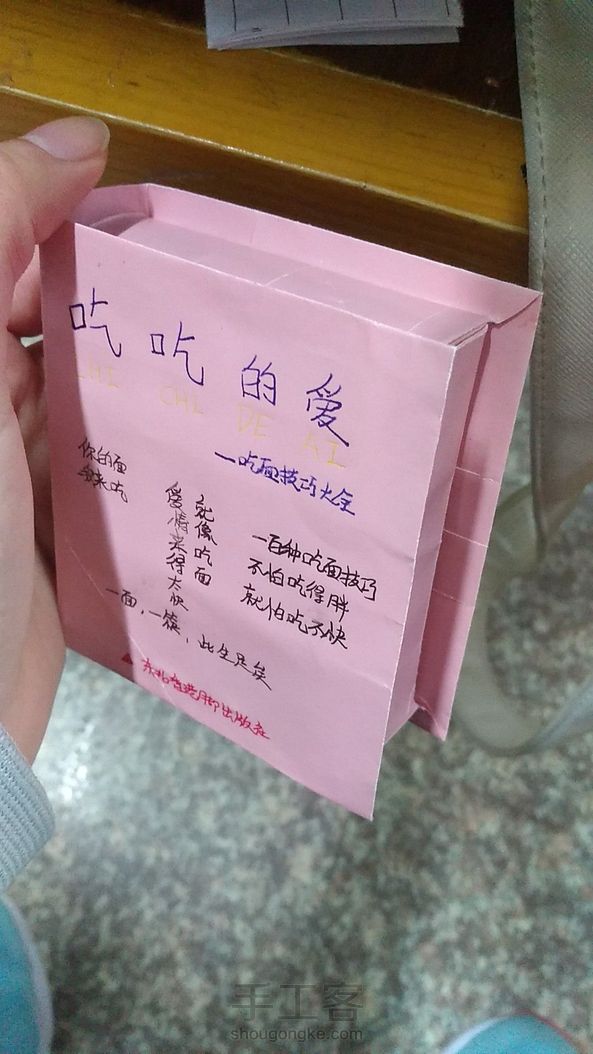 吃吃的爱
CHI CHI DE AI
一吃面技巧大全
你的面
拿来吃
就像吃面
爱情来得太快
一百种吃面技巧
不怕吃得胖
就怕吃不快
一面,一筷,此生足矣
出版社
手工客
shougongke.com